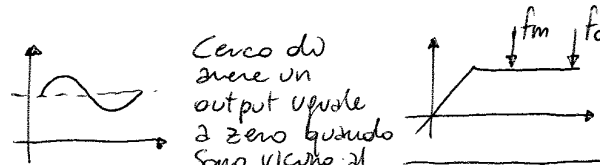 Cerco di
avere un
output uguale
a zero quando
sono vicino al
fm